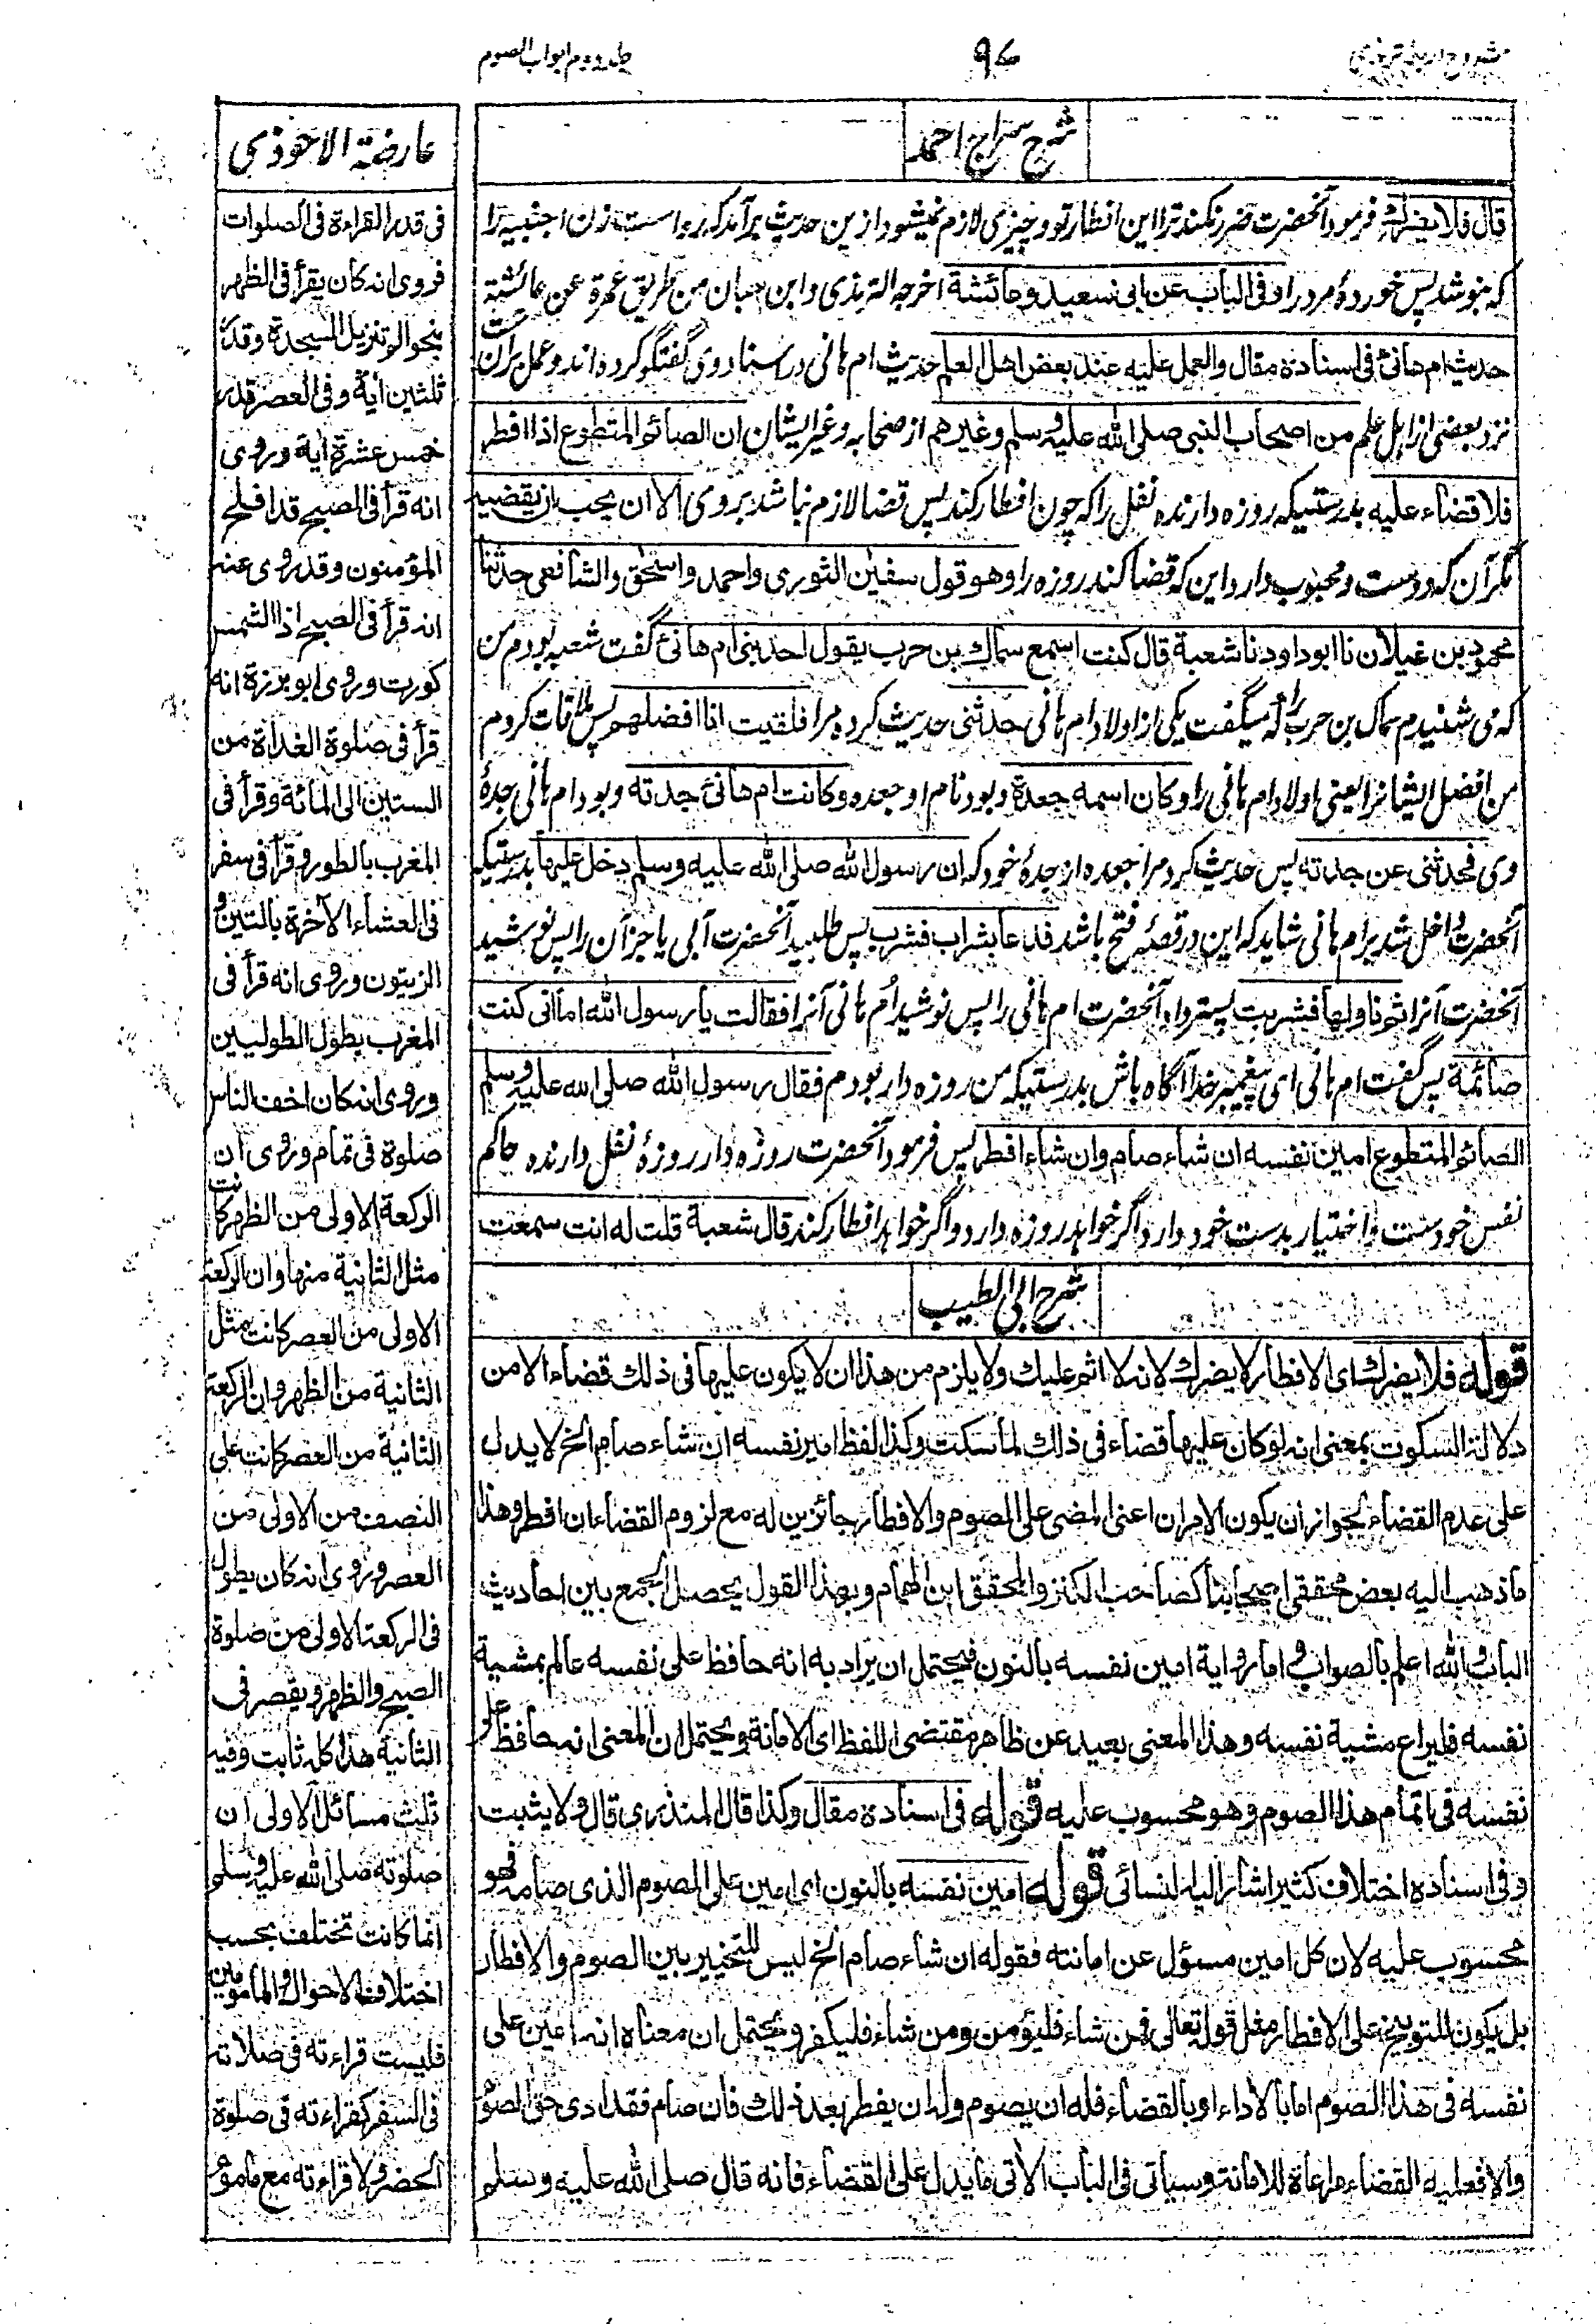 شروح اربعه ترمذی
۹۷
جلد دوم ابواب الصوم
شرح سراج احمد
قال فلا یضرك فرمود آنحضرت ضرر نکند ترا این افطار تو و چیزی لازم نمیشود ازین حدیث برآمد که روا است زن اجنبیه را
که بنوشد پس خوردهٔ مرد را و فی الباب عن ابی سعید و عائشة اخرجه الترمذی و ابن حبان من طریق عمرة عن عائشة
حدیث ام هانئ فی اسناده مقال والعمل علیه عند بعض اهل العلم حدیث ام هانی در اسناد وی گفتگو کرده اند و عمل بران ست
نزد بعضی از اهل علم من اصحاب النبی صلی الله علیه وسلم وغیرهم از صحابه و غیر ایشان ان الصائم المتطوع اذا افطر
فلا قضاء علیه بدرستیکه روزه دارنده نفل را که چون افطار کند پس قضا لازم نباشد بروی الا ان یحب ان یقضیه
مگر آن که دوست و محبوب دارد این که قضا کند روزه را وهو قول سفین الثوری واحمد واسحق والشافعی حدثنا
محمود بن غیلان نا ابو داود نا شعبة قال کنت اسمع سماك بن حرب یقول احد بنی ام هانئ گفت شعبه بودم من
که می شنیدم سماک بن حرب را که میگفت یکی از اولاد ام هانی حدثنی حدیث کرده مرا فلقیت انا افضلهم پس ملاقات کردم
من افضل ایشانرا یعنی اولاد ام هانی را وکان اسمه جعدة و بود نام او جعده وکانت ام هانئ جدته و بود ام هانی جدهٔ
وی فحدثنی عن جدته پس حدیث کرد مرا جعده از جدهٔ خود که ان رسول الله صلی الله علیه وسلم دخل علیها بدرستیکه
آنحضرت داخل شد بر ام هانی شاید که این در قصهٔ فتح باشد فدعا بشراب فشرب پس طلبید آنحضرت آبی یا جز آن را پس نوشید
آنحضرت آنرا ثم ناولها فشربت پستر داد آنحضرت ام هانی را پس نوشید ام هانی آنرا فقالت یا رسول الله اما انی کنت
صائمة پس گفت ام هانی ای پیغمبر خدا آگاه باش بدرستیکه من روزه دار بودم فقال رسول الله صلی الله علیه وسلم
الصائم المتطوع امین نفسه ان شاء صام وان شاء افطر پس فرمود آنحضرت روزه دار روزهٔ نفل دارنده حاکم
نفس خودست و اختیار بدست خود دارد اگر خواهد روزه دارد و اگر خواهد افطار کند قال شعبة قلت له انت سمعت
شرح ابی الطیب
قوله فلا یضرك ای الافطار لا یضرك لانه لا اثم علیك ولا یلزم من هذا ان لا یکون علیها فی ذلك قضاء الا من
دلالة السکوت بمعنی انه لو کان علیها قضاء فی ذلك لما سکت وکذا لفظ امیر نفسه ان شاء صام الخ لا یدل
علی عدم القضاء لجواز ان یکون الامران اعنی المضی علی الصوم والافطار جائزین له مع لزوم القضاء ان افطر وهذا
ما ذهب الیه بعض محققی اصحابنا کصاحب الکنز والمحقق ابن الهمام وبهذا القول یحصل الجمع بین احادیث
الباب والله اعلم بالصواب واما روایة امین نفسه بالنون فیحتمل ان یراد به انه حافظ علی نفسه عالم بمشیة
نفسه فلیراع مشیة نفسه وهذا المعنی بعید عن ظاهر مقتضی اللفظ ای الامانة ویحتمل ان المعنی انه حافظ علی
نفسه فی اتمام هذا الصوم وهو محسوب علیه قوله فی اسناده مقال وکذا قال المنذری قال ولا یثبت
وفی اسناده اختلاف کثیر اشار الیه النسائی قوله امین نفسه بالنون ای امین علی الصوم الذی صامه فهو
محسوب علیه لان کل امین مسؤل عن امانته فقوله ان شاء صام الخ لیس للتخییر بین الصوم والافطار
بل یکون للتوبیخ علی الافطار مثل قوله تعالی فمن شاء فلیؤمن ومن شاء فلیکفر ویحتمل ان معناه انه امین علی
نفسه فی هذا الصوم اما بالاداء او بالقضاء فله ان یصوم وله ان یفطر بعد ذلك فان صام فقد ادی حق الصوم
والا فعلیه القضاء مراعاة للامانة وسیأتی فی الباب الآتی ما یدل علی القضاء فانه قال صلی الله علیه وسلم
عارضة الاحوذی
فی قدر القراءة فی الصلوات
فروی انه کان یقرأ فی الظهر
بنحو الم تنزیل السجدة وقدر
ثلثین آیة وفی العصر قدر
خمس عشرة آیة وروی
انه قرأ فی الصبح قد افلح
المؤمنون وقد روی عنه
انه قرأ فی الصبح اذا الشمس
کورت وروی ابو برزة انه
قرأ فی صلوة الغداة من
الستین الی المائة وقرأ فی
المغرب بالطور وقرأ فی سفر
فی العشاء الآخرة بالتین و
الزیتون وروی انه قرأ فی
المغرب بطول الطولیین
وروی انه کان اخف الناس
صلوة فی تمام وروی ان
الرکعة الاولی من الظهر کانت
مثل الثانیة منها وان الرکعة
الاولی من العصر کانت مثل
الثانیة من الظهر وان الرکعة
الثانیة من العصر کانت علی
النصف من الاولی من
العصر وروی انه کان یطول
فی الرکعة الاولی من صلوة
الصبح والظهر ویقصر فی
الثانیة هذا کله ثابت وفیه
ثلث مسائل الاولی ان
صلوته صلی الله علیه وسلم
انما کانت تختلف بحسب
اختلاف الاحوال والمأمومین
فلیست قراءته فی صلاته
فی السفر کقراءته فی صلوة
الحضر ولا قراءته مع مأموم